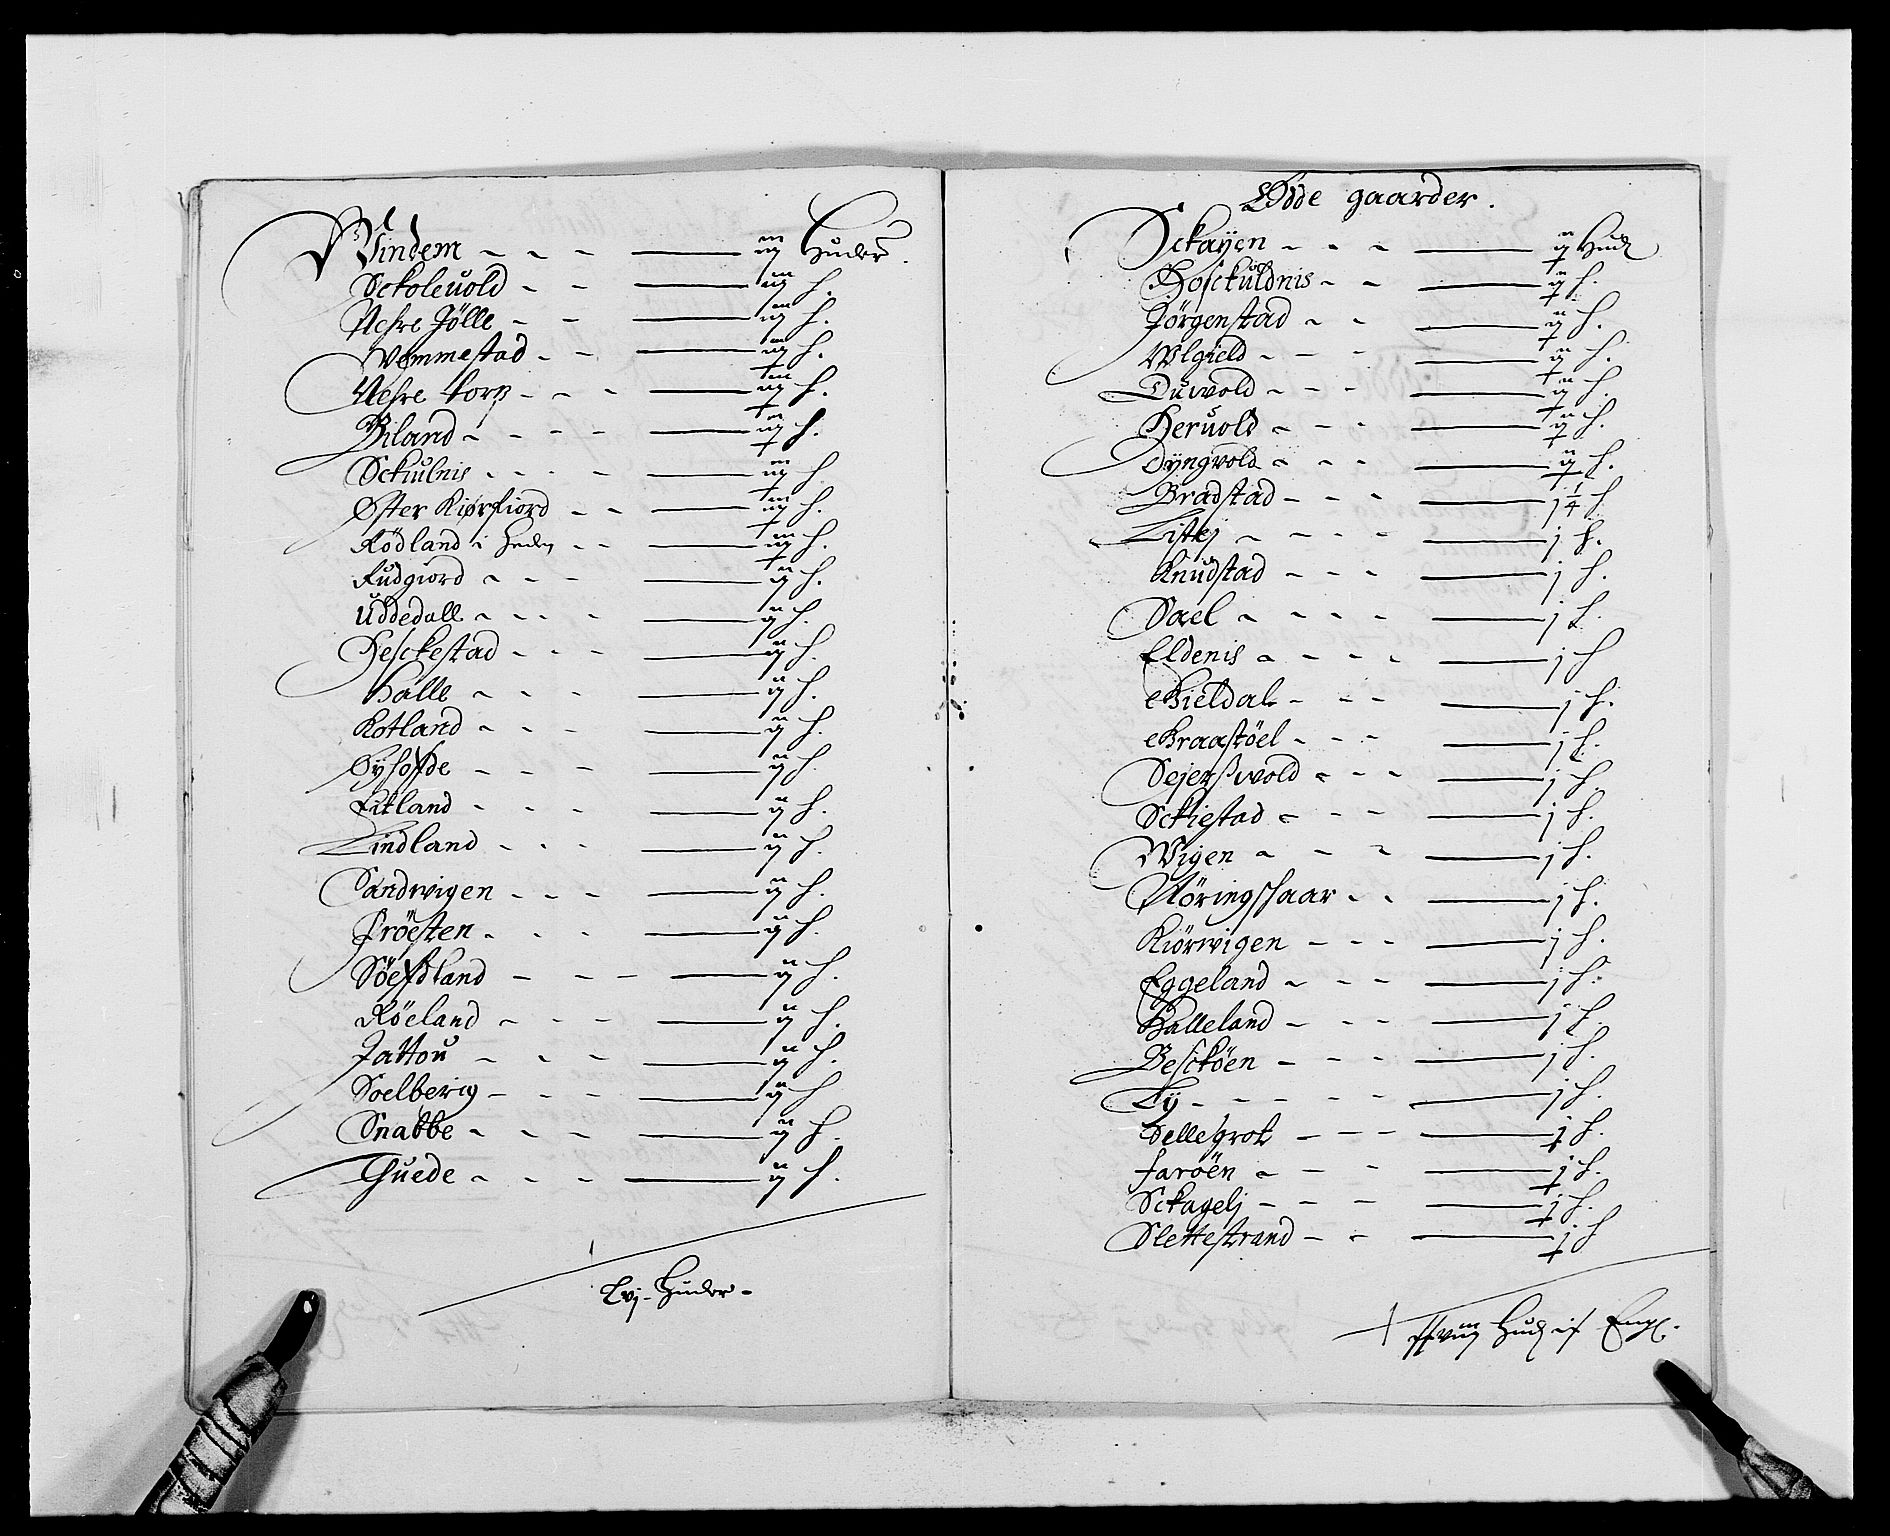 Windem - - - iij Huder.
Sckoleuold - - iij h.
Nesre Jölle - - iij h.
Wemmestad - - iij h.
Nesre torp - - - iij h.
Biland - - - - iij h.
Sckiulnis - - - - iij h.
Øster Kiørfiord - - iij h.
Rödland i - - iij h.
Fudgiord - - - ij h.
Uddedall - - - - ij h.
Hesckestad - - - ij h.
Halle - - - ij h.
Kotland - - - ij h.
Öyhofde - - - ij h.
Eitland - - - ij h.
Lindland - - - ij h.
Sandwigen - - - ij h.
Fröesten - - - ij h.
Söefdland - - - ij h.
Röeland - - - ij h.
Jattou - - - ij h.
Soelberig - - - ij h
Snabbe - - - ij h.
Thuede - - - - ij h.
Lvj - Huder -
Ødde gaarder.
Sckayen - - - ij Hud
Hosckuldnis - - ij h.
Jörgenstad - - ij h.
Wlgield - - - ij h.
Duwold - - - ij h.
Heruold - - - ij h.
Dyngvold - - - ij h.
Bradstad - - - j 1/4 h
Listej - - - - j h.
Knudstad - - - j h.
Sael - - - - j h.
Eldenis - - - - j h
Gieldal - - - j h.
Graastöel - - - j h.
Sejerswold - - - j h.
Sckiestad - - - j h.
Wigen - - - j h.
Nöringshaar - - j h.
Kiörwigen - - - j h.
Eggeland - - - j h.
Halleland - - - j h
Bescköen - - - j h.
Ty - - - - - j h.
Tellesgrot - - - j h.
Faröen - - - j h.
Sckagelj - - - j h.
Slettestrand - - j h
Hud